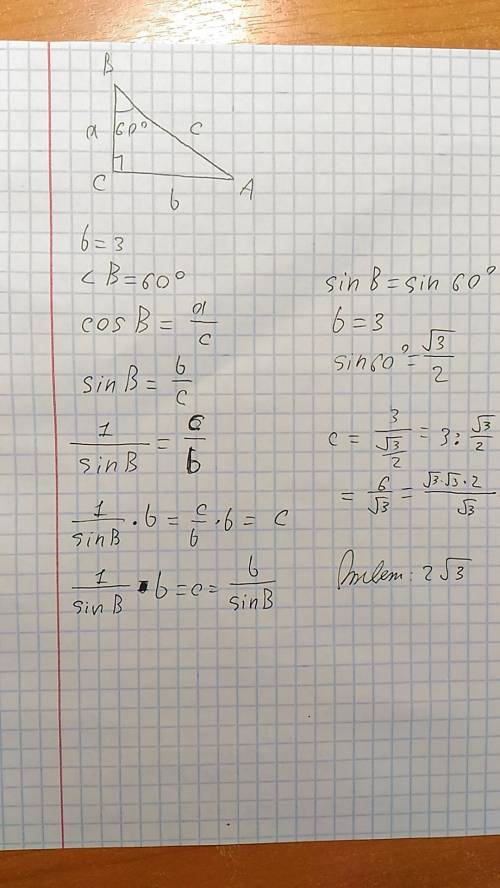 B
a 60° c
C
b
A
b = 3
∠B = 60°
cos B = a/c
sin B = b/c
1/sin B = c/b
1/sin B · b = c/b · b = c
1/sin B · b = c = b/sin B
sin B = sin 60°
b = 3
sin 60° = √3/2
c = 3/(√3/2) = 3 : √3/2
= 6/√3 = √3·√3·2/√3
Ответ: 2√3